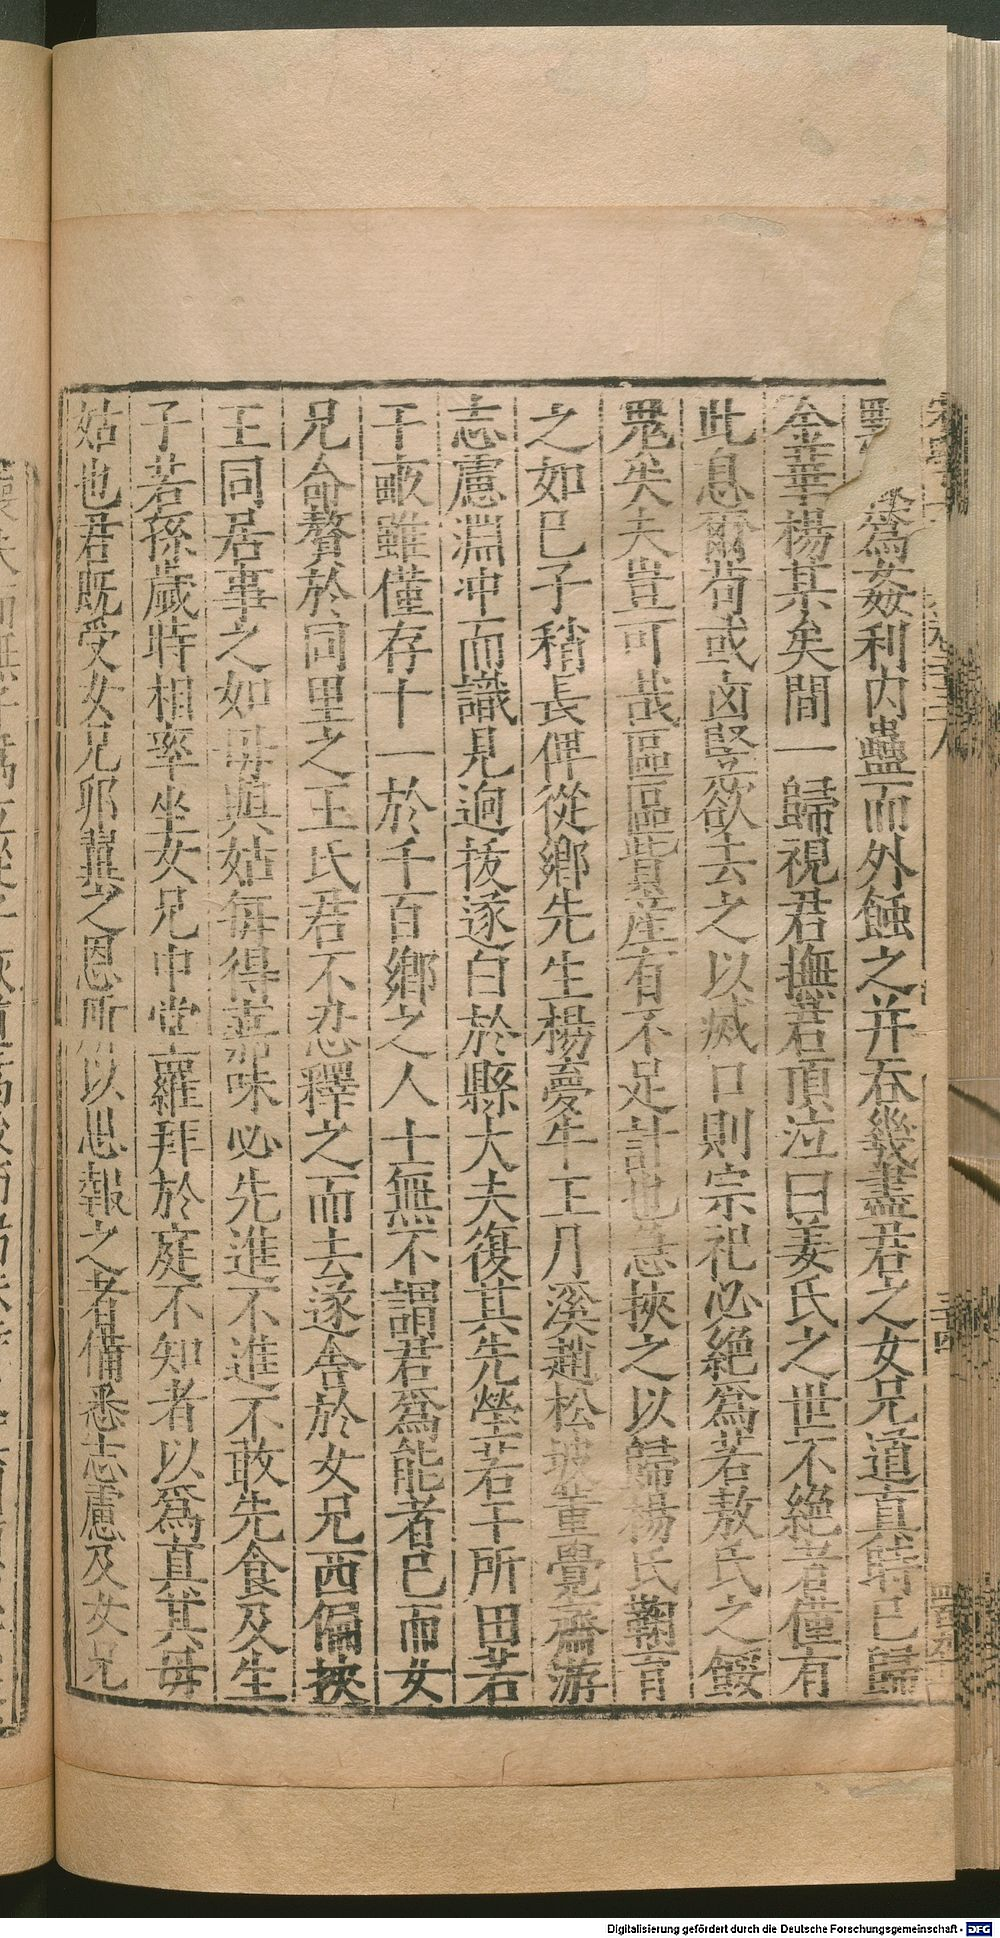 爲姦利内蠱而外蝕之并吞幾盡君之女兄道真時已歸
金華楊某矣間一歸視君撫君頂泣曰姜氏之世不絶者僅有
此息爾苟或卤豎欲去之以滅口則宗祀必絶爲若敖氏之餒
鬼矣夫豈可哉區區貲産有不足計也急挾之以歸楊氏鞠育
之如已子稍長俾從鄉先生楊憂牛王月溪趙松坡董覺齋游
志慮淵冲而識見逈拔遂白於縣大夫復其先塋若干所田若
干畝雖僅存十一於千百鄉之人士無不謂君爲能者已而女
兄命贅於同里之王氏君不忍釋之而去遂舍於女兄西偏挾
王同居事之如毋與姑每得嘉味必先進不進不敢先食及生
子若孫歲時相率坐女兄中堂羅拜於庭不知者以爲真其毋
姑也君既受女兄卵翼之恩所以思報之者備悉志慮及女兄
Digitalisierung gefördert durch die Deutsche Forschungsgemeinschaft - DFG